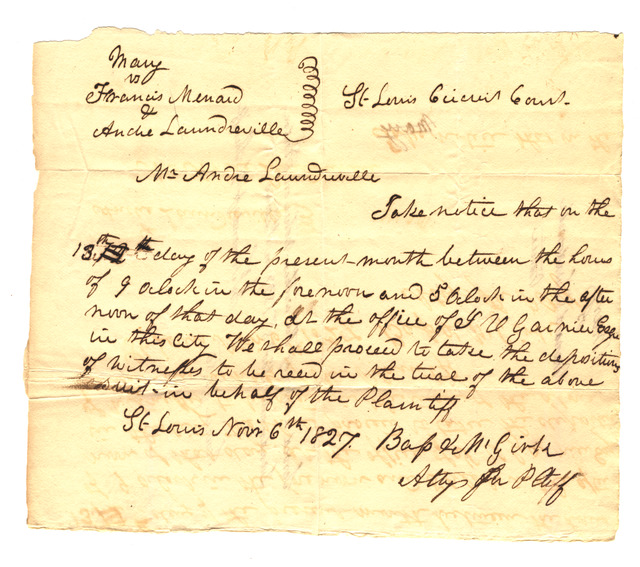 Mary
vs
Francis Menard
&
Andre Laundreville
St Louis Circuit Court
Mr Andre Laundreville
Take notice that on the
13th day of the present month between the hours
of 9 oclock in the forenoon and 5 Oclock in the after
noon of that day, at the office of J V Garnier Esqr
in this City We shall proceed to take the depositions
of witnesses to be reed in the trial of the above
suit in behalf of the Plaintiff
St Louis Novr 6th 1827. Bass & McGirk
Attys for Pltff